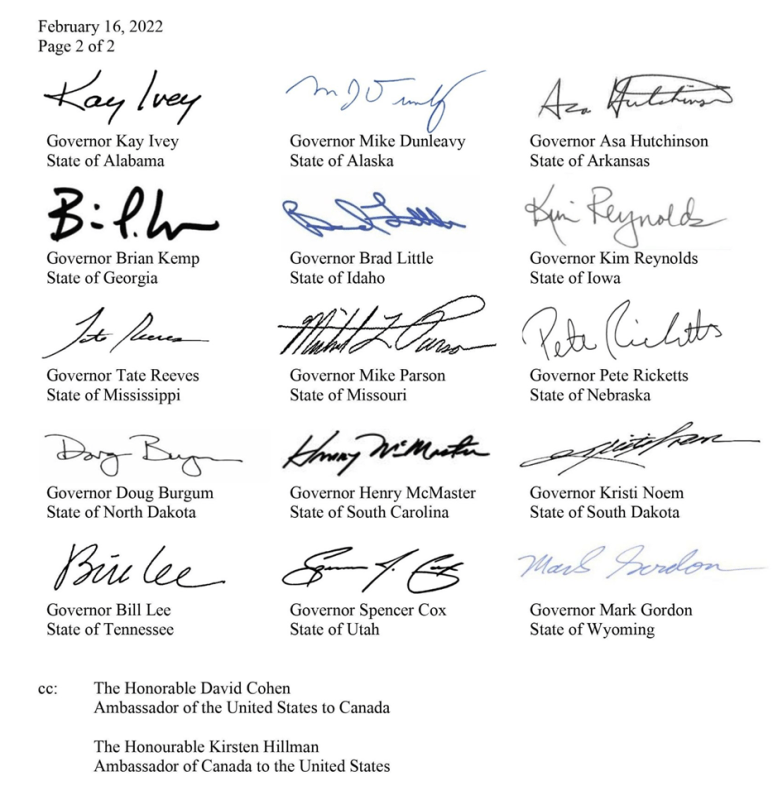 February 16, 2022
Page 2 of 2
Kay Ivey
Governor Kay Ivey
State of Alabama
Governor Mike Dunleavy
State of Alaska
Asa Hutchinson
Governor Asa Hutchinson
State of Arkansas
Governor Brian Kemp
State of Georgia
Brad Little
Governor Brad Little
State of Idaho
Kim Reynolds
Governor Kim Reynolds
State of Iowa
Tate Reeves
Governor Tate Reeves
State of Mississippi
Michael L Parson
Governor Mike Parson
State of Missouri
Pete Ricketts
Governor Pete Ricketts
State of Nebraska
Doug Burgum
Governor Doug Burgum
State of North Dakota
Henry McMaster
Governor Henry McMaster
State of South Carolina
Governor Kristi Noem
State of South Dakota
Bill Lee
Governor Bill Lee
State of Tennessee
Spencer J. Cox
Governor Spencer Cox
State of Utah
Mark Gordon
Governor Mark Gordon
State of Wyoming
cc: The Honorable David Cohen
Ambassador of the United States to Canada
The Honourable Kirsten Hillman
Ambassador of Canada to the United States